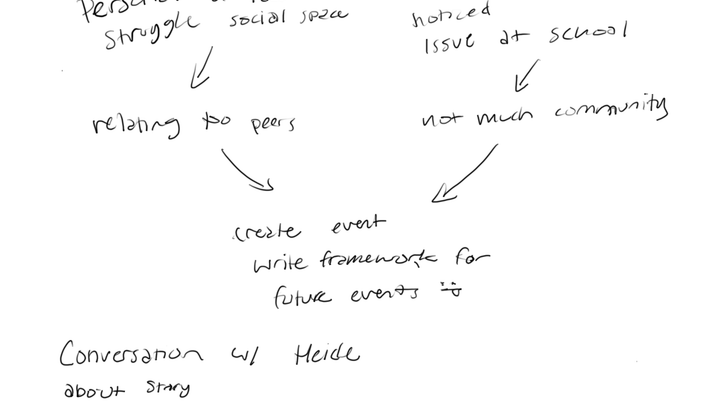 Struggle social space
noticed
issue at school
relating to peers
not much community
create event
write framework for
future events
Conversation w/ Heide
about story